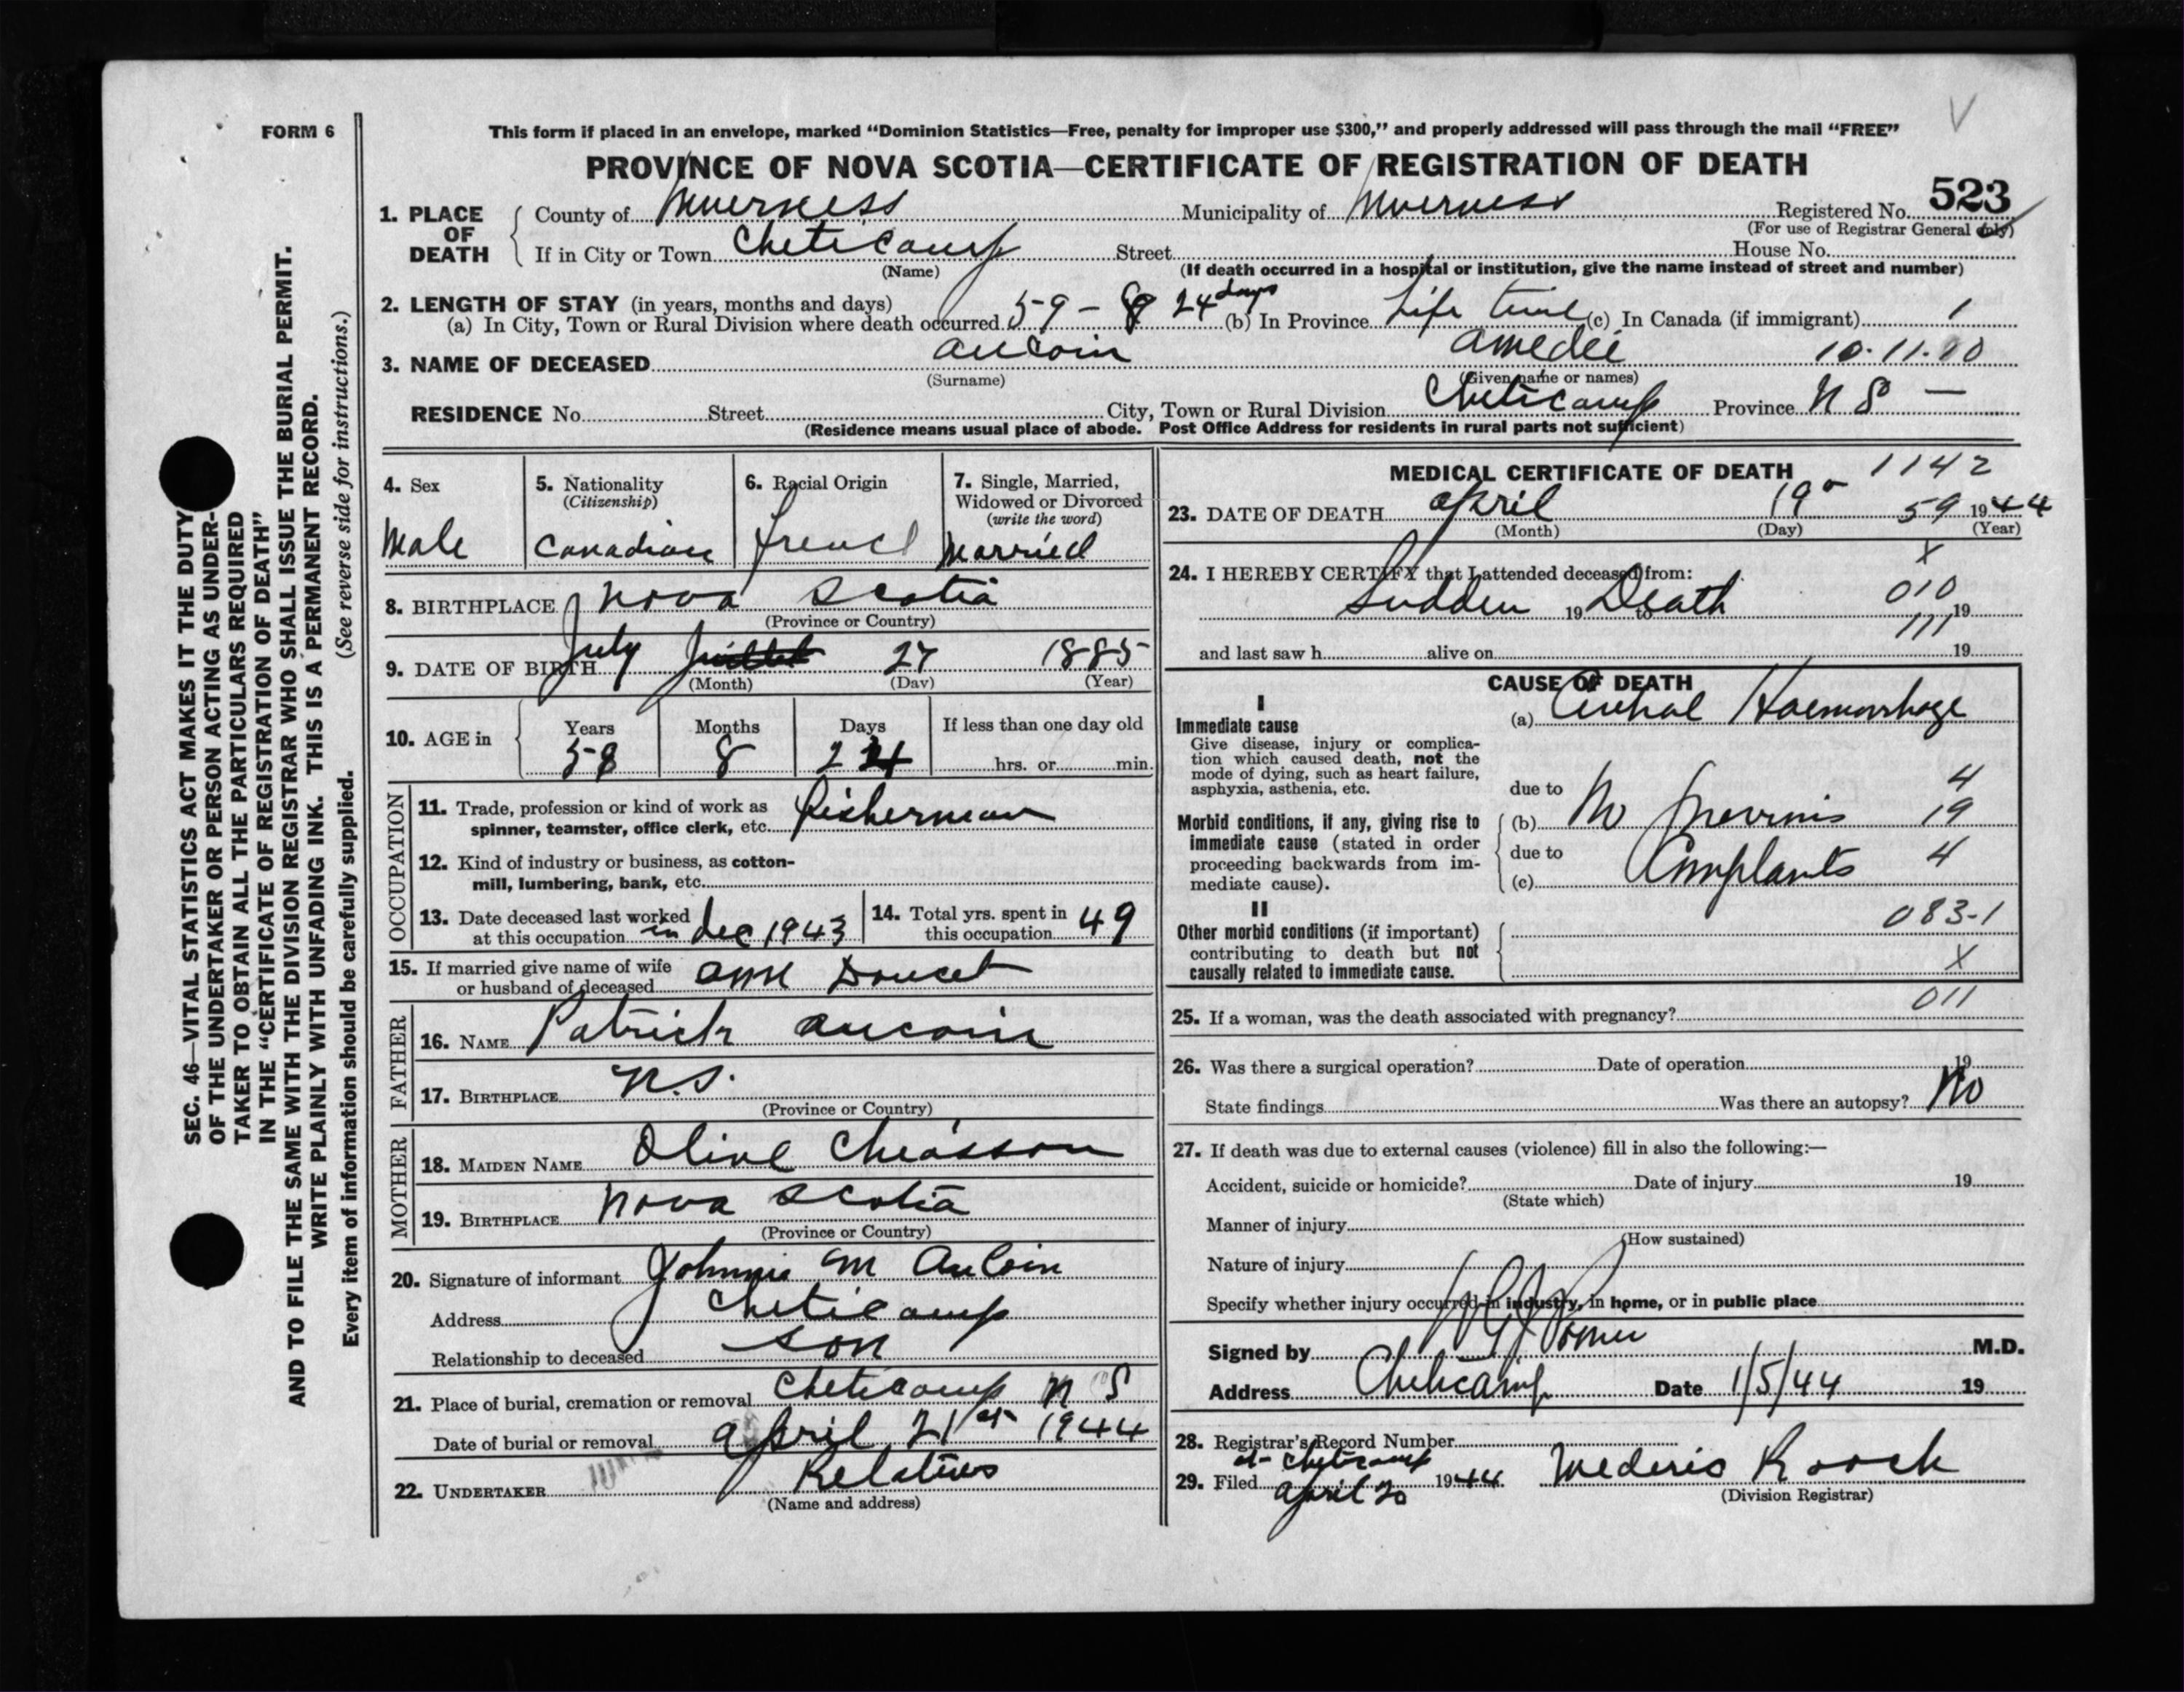 FORM 6
This form if placed in an envelope, marked “Dominion Statistics—Free, penalty for improper use $300,” and properly addressed will pass through the mail “FREE”
PROVINCE OF NOVA SCOTIA—CERTIFICATE OF REGISTRATION OF DEATH
1. PLACE OF DEATH County of Inverness Municipality of Inverness Registered No. 523
(For use of Registrar General only)
If in City or Town Cheticamp Street House No.
(Name) (If death occurred in a hospital or institution, give the name instead of street and number)
2. LENGTH OF STAY (in years, months and days)
(a) In City, Town or Rural Division where death occurred 59 - 8 24 days (b) In Province Life time (c) In Canada (if immigrant) 1
3. NAME OF DECEASED Aucoin Amedee 10.11.00
(Surname) (Given name or names)
RESIDENCE No. Street City, Town or Rural Division Cheticamp Province N S —
(Residence means usual place of abode. Post Office Address for residents in rural parts not sufficient)
4. Sex Male
5. Nationality (Citizenship) Canadian
6. Racial Origin French
7. Single, Married, Widowed or Divorced (write the word) Married
8. BIRTHPLACE Nova Scotia
(Province or Country)
9. DATE OF BIRTH July 27 1885
(Month) (Day) (Year)
10. AGE in Years Months Days If less than one day old
58 8 24 hrs. or min.
OCCUPATION
11. Trade, profession or kind of work as spinner, teamster, office clerk, etc. fisherman
12. Kind of industry or business, as cotton-mill, lumbering, bank, etc.
13. Date deceased last worked at this occupation in dec 1943
14. Total yrs. spent in this occupation 49
15. If married give name of wife or husband of deceased Ann Doucet
FATHER
16. NAME Patrick Aucoin
17. BIRTHPLACE N.S.
(Province or Country)
MOTHER
18. MAIDEN NAME Olive Chiasson
19. BIRTHPLACE Nova Scotia
(Province or Country)
20. Signature of informant Johnnie M AuCoin
Address Cheticamp
Relationship to deceased son
21. Place of burial, cremation or removal Cheticamp N S
Date of burial or removal April 21st 1944
22. UNDERTAKER Relatives
(Name and address)
MEDICAL CERTIFICATE OF DEATH 1142
23. DATE OF DEATH April 19 59 1944
(Month) (Day) (Year)
X
24. I HEREBY CERTIFY that I attended deceased from:
010
Sudden 19 to Death 19
111
and last saw h alive on 19
CAUSE OF DEATH
I
Immediate cause (a) Haemorrhage
Give disease, injury or complication which caused death, not the mode of dying, such as heart failure, asphyxia, asthenia, etc.
due to 4
Morbid conditions, if any, giving rise to immediate cause (stated in order proceeding backwards from immediate cause).
(b) No previous 19
due to 4
(c) Complaints
II 083-1
Other morbid conditions (if important) contributing to death but not causally related to immediate cause.
X
011
25. If a woman, was the death associated with pregnancy?
26. Was there a surgical operation? Date of operation 19
State findings Was there an autopsy? No
27. If death was due to external causes (violence) fill in also the following:—
Accident, suicide or homicide? Date of injury 19
(State which)
Manner of injury
(How sustained)
Nature of injury
Specify whether injury occurred in industry, in home, or in public place
Signed by M.D.
Address Cheticamp Date 1/5/44 19
28. Registrar's Record Number
at Cheticamp
29. Filed April 20 1944
(Division Registrar)
SEC. 46—VITAL STATISTICS ACT MAKES IT THE DUTY
OF THE UNDERTAKER OR PERSON ACTING AS UNDER-
TAKER TO OBTAIN ALL THE PARTICULARS REQUIRED
IN THE “CERTIFICATE OF REGISTRATION OF DEATH”
AND TO FILE THE SAME WITH THE DIVISION REGISTRAR WHO SHALL ISSUE THE BURIAL PERMIT.
WRITE PLAINLY WITH UNFADING INK. THIS IS A PERMANENT RECORD.
Every item of information should be carefully supplied. (See reverse side for instructions.)